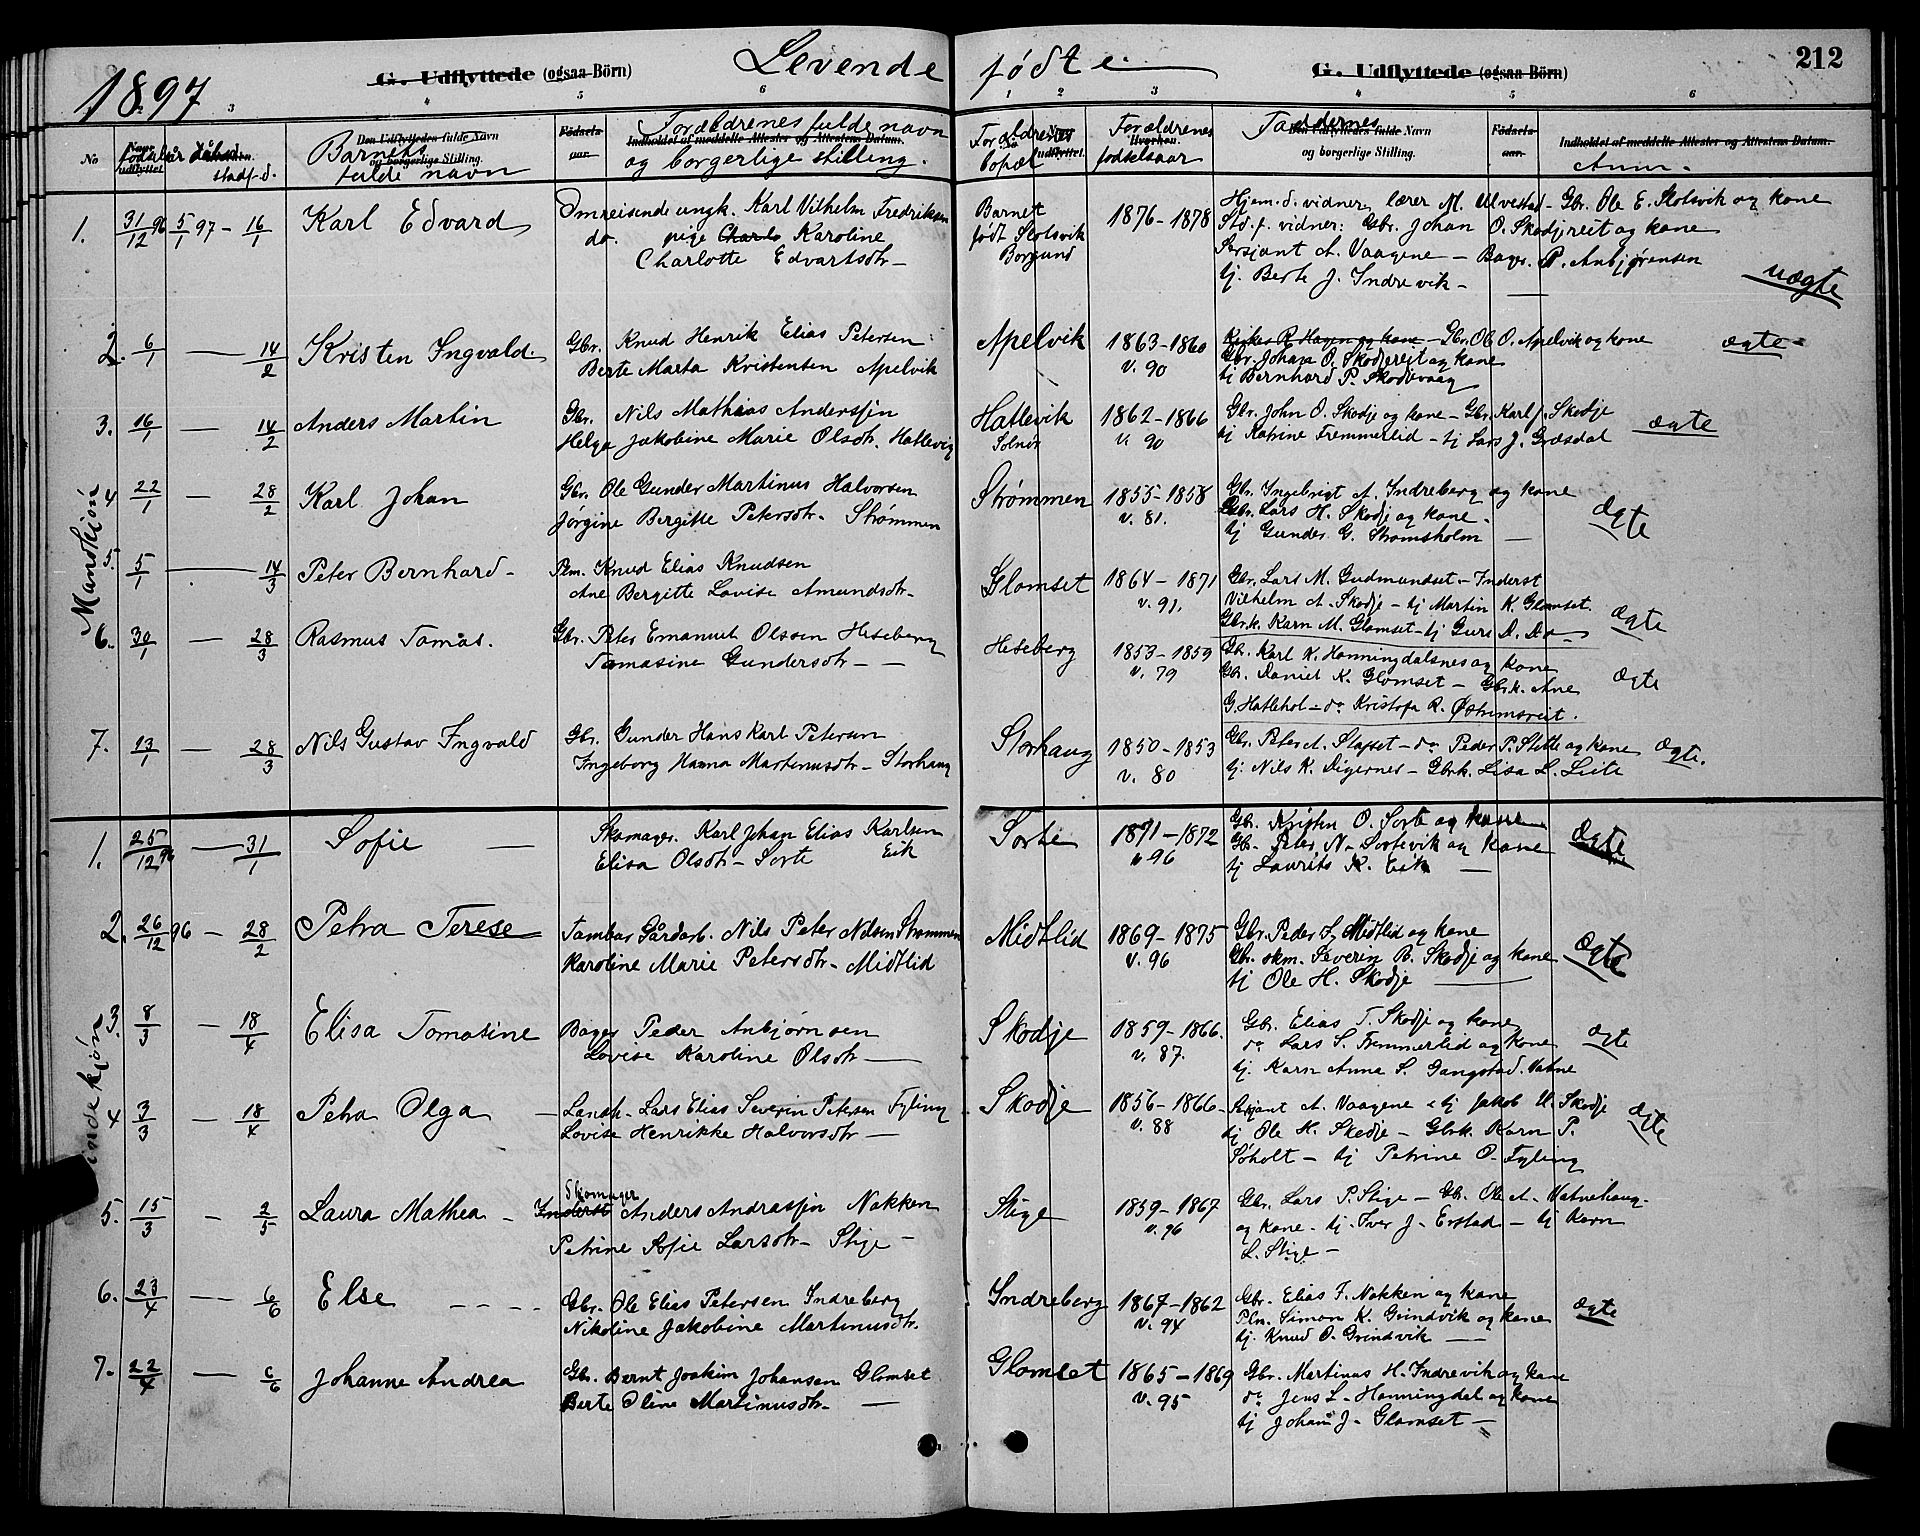 1897
G. Udflyttede (ogsaa Börn)
Levende
fødte.
G. Udflyttede (ogsaa Börn)
212
3 4 5 6 1 2 3 4 5 6
No
Barnets fulde navn
Den Udflyttedes fulde Navn og borgerlige Stilling.
Fødselsaar.
Forældrenes fulde navn
Indholdet af meddelte Attester og Attestens Datum.
og borgerlige stilling.
Forældrenes bopæl
Forældrenes fødselsaar
Faddernes
Den Udflyttedes fulde Navn og borgerlige Stilling.
Fødselsaar.
Indholdet af meddelte Attester og Attestens Datum.
Anm.
Mandkjøn
1. 31/12 96 5/1 97 - 16/1 Karl Edvard
Omreisende ungk. Karl Vilhelm Fredriksen
do. pige Charlo Karoline
Charlotte Edvartsdtr -
Barnet født Slotsvik Borgund
1876 - 1878
Hjem.d. vidner, lærer M. Ulvestad - Gbr. Ole E. Slotsvik og kone
Std.f. vidner: Gbr. Johan O. Skodjereit og kone
Sersjant A. Vaagene - Bager P. Anbjørnsen
tj. Berte J. Indrevik -
uægte
2. 6/1 - 14/2 Kristen Ingvald
Gbr. Knud Henrik Elias Petersen
Berte Marta Kristensen Apelvik
Apelvik
1863 - 1860
v. 90
og kone - Gbr. Ole O. Apelvik og kone
Gbr. Johan O. Skodjereit og kone
tj Bernhard P. Skodjevaag
ægte -
3. 16/1 - 14/2 Anders Martin
Gbr. Nils Mathias Andersjøn
Helga Jakobine Marie Olsdtr. Hatlevig
Hatlevik
Solnør
1862 - 1866
v. 90
Gbr. John O. Skodje og kone - Gbr. Karl J. Skodje
tj Katrine Fremmerlid - tj Lars J. Græsdal
ægte
4 22/1 - 28/2 Karl Johan
Gbr. Ole Gunder Martinus Halvorsen
Jørgine Bergitte Petersdtr. Strømmen
Strømmen
1855 - 1858
v. 81.
Gbr. Ingebrigt A. Indreberg og kone
Gbr. Lars H. Skodje og kone -
tj Gunder G. Strømsholm -
Ægte
5. 5/1 - 14/3 Peter Bernhard -
Plm. Knud Elias Knudsen
Ane Bergitte Lovise Amundsdtr -
Glomset
1864 - 1871
v. 91.
Gbr. Lars M. Gudmundset - Inderst
Vilhelm A. Skodje - tj Martin K. Glomset.
Gbrk. Karn M. Glomset - tj Guri D. Do -
Ægte
6. 30/1 - 28/3 Rasmus Tomas.
Gbr. Peter Emanuel Olsen Heseberg
Tomasine Gundersdtr -
Heseberg
1853 - 1859
v. 79
Gbr. Karl K. Honningdalsnes og kone
Gbr. Daniel K. Glomset - Gbrk. Ane
G. Hatlehol - do Kristofa R.
Ægte
7. 23/1 - 28/3 Nils Gustav Ingvald
Gbr. Gunder Hans Karl Petersen
Ingeborg Hanna Martinusdtr - Storhaug
Storhaug
1850 - 1853
v. 80
Gbr. Peter A. Slafset - do Peder P. Stette og kone
tj. Nils K. Digernes - Gbrk. Lisa L. Leite
Ægte.
1. 25/12 96 - 31/1 Sofie -
Skomager. Karl Johan Elias Karlsen
Elisa Olsdtr - Sorte Eik
Sorte
1871 - 1872
v 96
Gbr. Kristen O. Sorte og kone
Gbr. Peter N. Sortevik og kone
tj Laurits K. Eik -
Ægte
2. 26/12 96 - 28/2 Petra Terese
Tambur Gårdarb. Nils Peter Nilsen Strømmen
Karoline Marie Petersdtr - Midtlid
Midtlid
1869 - 1875
v. 96
Gbr. Peder L. Midtlid og kone
Gbr. skm. Severin B. Skodje og kone
tj Ole H. Skodje -
Ægte
3. 8/3 - 18/4 Elisa Tomasine
Bager Peder Anbjørnsen
Lovise Karoline Olsdtr -
Skodje
1859 - 1866.
v. 87.
Gbr. Elias T. Skodje og kone
do Lars S. Fremmerlid og kone
tj. Karn Anna S. Gangstad. Vatne
Ægte
4 3/3 - 18/4 Petra Olga -
Lensh. Lars Elias Severin Petersen Fyling
Lovise Henrikke Halvorsdtr -
Skodje
1856 - 1866 -
v. 88
Sersjant A. Vaagene - tj Jakob U. Skodje
tj Ole H. Skodje - Gbrk. Karn P.
Søholt - tj Petrine O. Fyling
Ægte
5. 15/3 - 2/5 Laura Mathea -
Skomager
Inderst Anders Andrasjøn Nakken
Petrine Sofie Larsdtr - Stige -
Stige
1859 - 1867
v. 96
Gbr. Lars P. Stige - Gbr. Ole A. Vatnehaug
og kone - tj. Iver J. Erstad - tj Karn
L. Stige -
6. 23/4 - 6/6 Else - - - -
Gbr. Ole Elias Petersen Indreberg
Nikoline Jakobine Martinusdtr.
Indreberg
1867 - 1862
v. 94
Gbr. Elias F. Nakken og kone
Plm. Simon K. Grindvik og kone
tj. Knud O. Grindvik -
Ægte
7. 22/4 - 6/6 Johanne Andrea
Gbr. Bernt Joakim Johansen Glomset
Berte Oline Martinusdtr. -
Glomset
1865 - 1869
v. 95
Gbr. Martinus H. Indrevik og kone
do Jens L. Honningdal og kone
tj Johan J. Glomset -